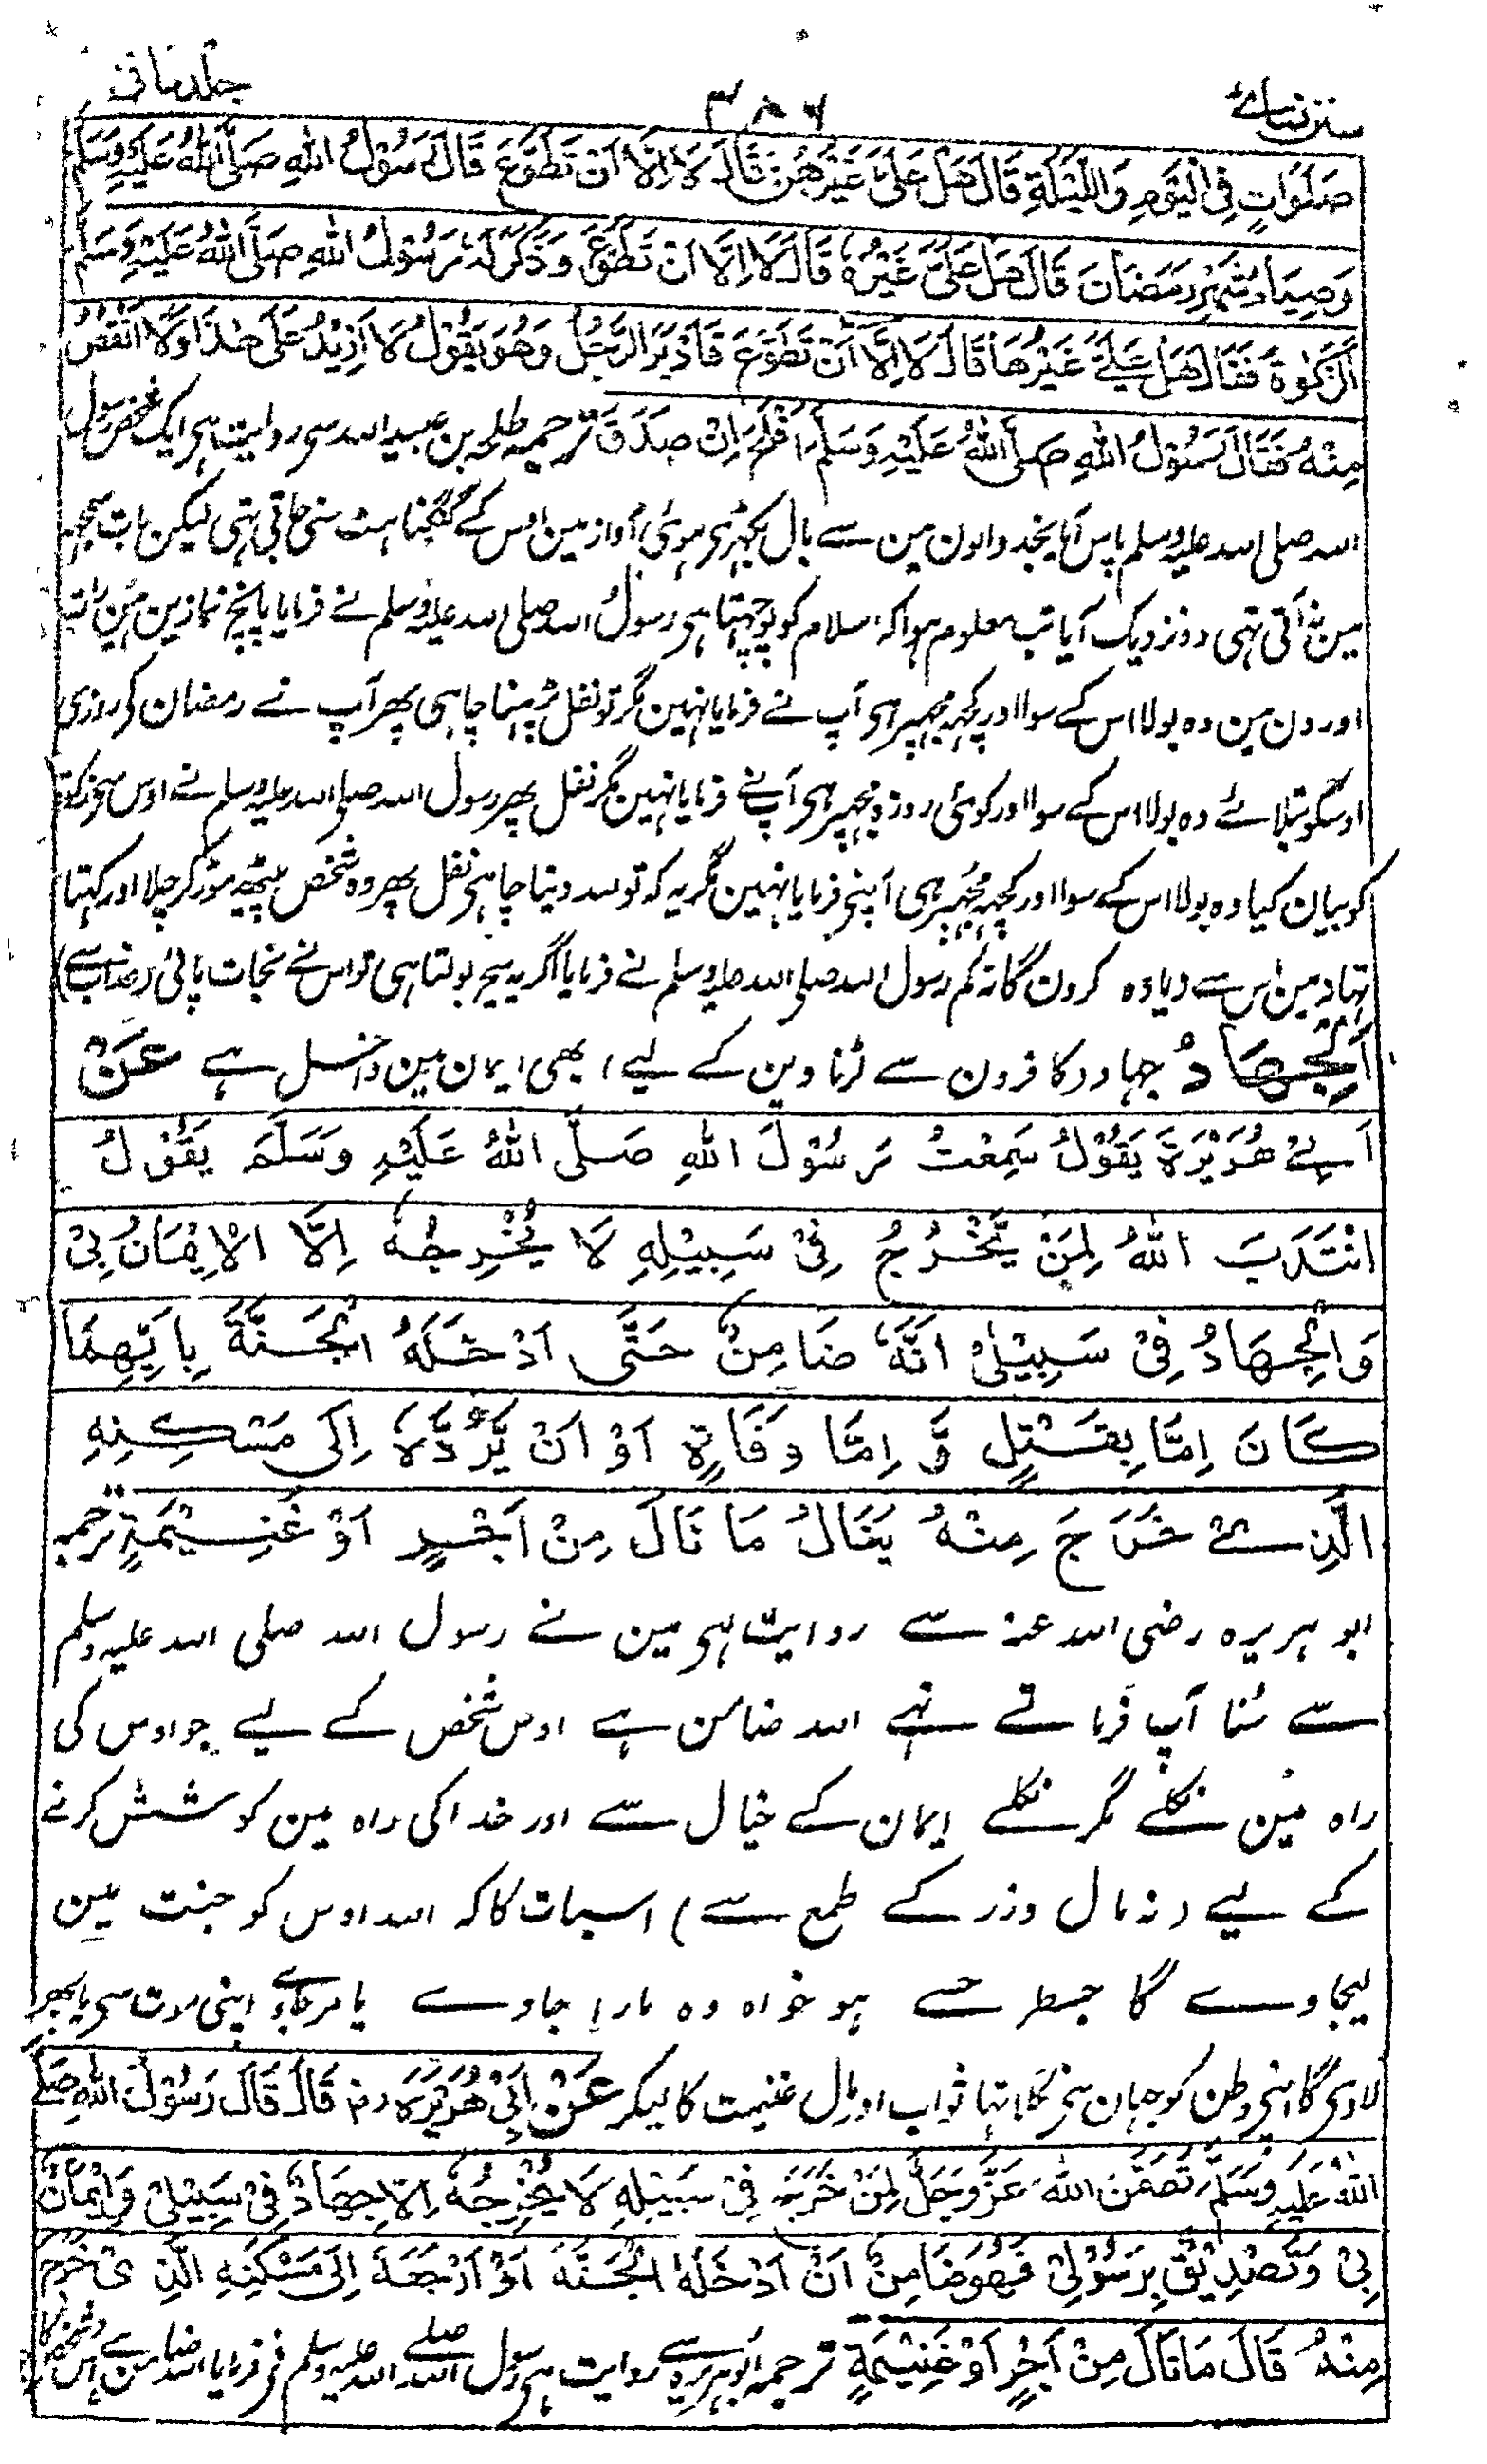 سنن نسائے ۳۸۶ جلد ثانی
صَلَوَاتٍ فِی الْیَوْمِ وَاللَّیْلَةِ قَالَ هَلْ عَلَیَّ غَیْرُهُنَّ قَالَ لَا اِلَّا اَنْ تَطَوَّعَ قَالَ رَسُوْلُ اللهِ صَلَّی اللهُ عَلَیْهِ وَسَلَّمَ
وَصِیَامُ شَهْرِ رَمَضَانَ قَالَ هَلْ عَلَیَّ غَیْرُهٗ قَالَ لَا اِلَّا اَنْ تَطَوَّعَ وَذَکَرَ لَهٗ رَسُوْلُ اللهِ صَلَّی اللهُ عَلَیْهِ وَسَلَّمَ
الزَّکٰوةَ فَقَالَ هَلْ عَلَیَّ غَیْرُهَا قَالَ لَا اِلَّا اَنْ تَطَوَّعَ فَاَدْبَرَ الرَّجُلُ وَهُوَ یَقُوْلُ لَا اَزِیْدُ عَلٰی هٰذَا وَلَا اَنْقُصُ
مِنْهُ فَقَالَ رَسُوْلُ اللهِ صَلَّی اللهُ عَلَیْهِ وَسَلَّمَ اَفْلَحَ اِنْ صَدَقَ ترجمہ طلحہ بن عبید اللہ سی روایت ہی ایک شخص رسول
اللہ صلی اللہ علیہ وسلم پاس آیا نجد والون مین سے بال بکھری ہوئی آواز مین اوس کے گنگناہٹ سنی جاتی تہی لیکن بات سمجہہ
مین نہ آتی تہی وہ نزدیک آیا تب معلوم ہوا کہ اسلام کو پوچہتا ہی رسول اللہ صلی اللہ علیہ وسلم نے فرمایا پانچ نمازین ہین رات
اور دن مین وہ بولا اس کے سوا اور کچہہ مجہپر ہی آپ نے فرمایا نہین مگر تو نفل پڑہنا چاہی پھر آپ نے رمضان کی روزی
اوسکو بتلائے وہ بولا اس کے سوا اور کوئی روزہ مجہپر ہی آپنے فرمایا نہین مگر نفل پھر رسول اللہ صلی اللہ علیہ وسلم نے اوس سی زکوۃ
کو بیان کیا وہ بولا اس کے سوا اور کچہہ مجہپر ہی آپنی فرمایا نہین مگر یہ کہ تو صدقہ دینا چاہی نفل پھر وہ شخص پیٹھ موڑ کر چلا اور کہتا
تہا مین اس سے زیادہ کرون گا نہ کم رسول اللہ صلی اللہ علیہ وسلم نے فرمایا اگر یہ سچ بولتا ہی تو اس نے نجات پائی (عذاب سے)
اَلْجِهَادُ جہاد (کافرون سے لڑنا دین کے لیے) بھی ایمان مین داخل ہے عَنْ
اَبِیْ هُرَیْرَةَ یَقُوْلُ سَمِعْتُ رَسُوْلَ اللهِ صَلَّی اللهُ عَلَیْهِ وَسَلَّمَ یَقُوْلُ
انْتَدَبَ اللهُ لِمَنْ یَّخْرُجُ فِیْ سَبِیْلِهِ لَا یُخْرِجُهٗ اِلَّا الْاِیْمَانُ بِیْ
وَالْجِهَادُ فِیْ سَبِیْلِیْ اَنَّهٗ ضَامِنٌ حَتّٰی اُدْخِلَهُ الْجَنَّةَ بِاَیِّهِمَا
کَانَ اِمَّا بِقَتْلٍ وَّ اِمَّا وَفَاةٍ اَوْ اَنْ یَّرُدَّهٗ اِلٰی مَسْکِنِهِ
الَّذِیْ خَرَجَ مِنْهُ یَنَالُ مَا نَالَ مِنْ اَجْرٍ اَوْ غَنِیْمَةٍ ترجمہ
ابو ہریرہ رضی اللہ عنہ سے روایت ہی مین نے رسول اللہ صلی اللہ علیہ وسلم
سے سنا آپ فرماتے تہے اللہ ضامن ہے اوس شخص کے لیے جو اوس کی
راہ مین نکلے مگر نکلے ایمان کے خیال سے اور خدا کی راہ مین کوشش کرنے
کے لیے (نہ مال وزر کے طمع سے) اسبات کا کہ اللہ اوس کو جنت مین
لیجاوے گا جسطرح سے ہو خواہ وہ مارا جاوے یا مرجاوے اپنی موت سی یا پھر
لاوی گا اپنی وطن کو جہان سی نکلا تہا ثواب اور مال غنیمت کا لیکر عَنْ اَبِیْ هُرَیْرَةَ رض قَالَ قَالَ رَسُوْلُ اللهِ صَلَّی
اللهُ عَلَیْهِ وَسَلَّمَ تَضَمَّنَ اللهُ عَزَّ وَجَلَّ لِمَنْ خَرَجَ فِیْ سَبِیْلِهِ لَا یُخْرِجُهٗ اِلَّا الْجِهَادُ فِیْ سَبِیْلِیْ وَاِیْمَانٌ
بِیْ وَتَصْدِیْقٌ بِرَسُوْلِیْ فَهُوَ ضَامِنٌ اَنْ اُدْخِلَهُ الْجَنَّةَ اَوْ اَرْجِعَهٗ اِلٰی مَسْکَنِهِ الَّذِیْ خَرَجَ
مِنْهُ قَالَ مَا نَالَ مِنْ اَجْرٍ اَوْ غَنِیْمَةٍ ترجمہ ابو ہریرہ سے روایت ہی رسول اللہ صلی اللہ علیہ وسلم نی فرمایا اللہ ضامن ہے اس شخص کا